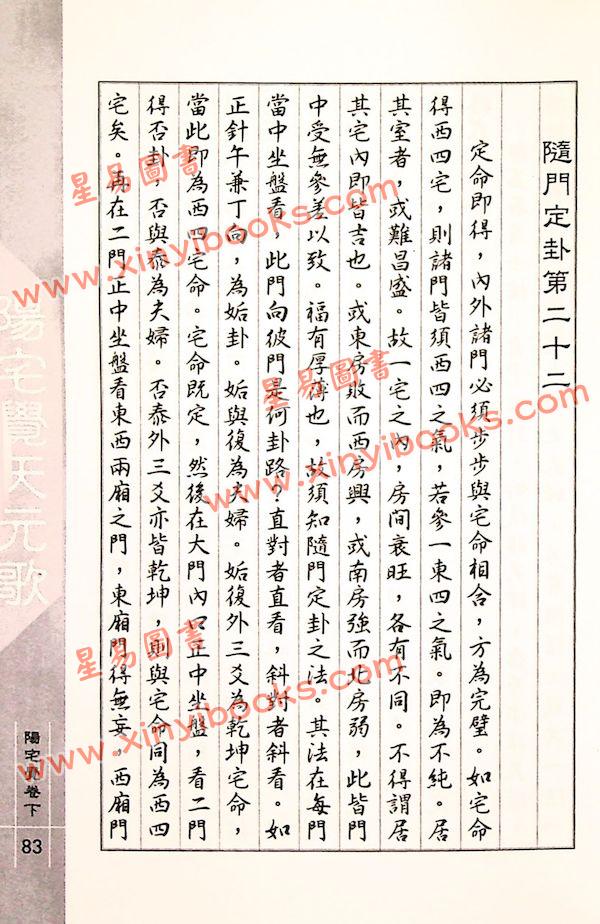 隨門定卦第二十二
定命即得，內外諸門必須步步與宅命相合，方為完璧。如宅命
得西四宅，則諸門皆須西四之氣，若參一東四之氣。即為不純。居
其室者，或難昌盛。故一宅之內，房間衰旺，各有不同。不得謂居
其宅內即皆吉也。或東房敗而西房興，或南房強而北房弱，此皆門
中受無參差以致。福有厚薄也，故須知隨門定卦之法。其法在每門
當中坐盤看，此門向彼門是何卦路？直對者直看，斜對者斜看。如
正針午兼丁向，為姤卦。姤與復為夫婦。姤復外三爻為乾坤宅命，
當此即為西四宅命。宅命既定，然後在大門內口正中坐盤，看二門
得否卦，否與泰為夫婦。否泰外三爻亦皆乾坤，則與宅命同為西四
宅矣。再在二門正中坐盤看東西兩廂之門，東廂門得無妄，西廂門
陽宅覺天元歌
陽宅 卷下
83
星易圖書
www.xinyibooks.com
星易圖書
www.xinyibooks.com
星易圖書
www.xinyibooks.com